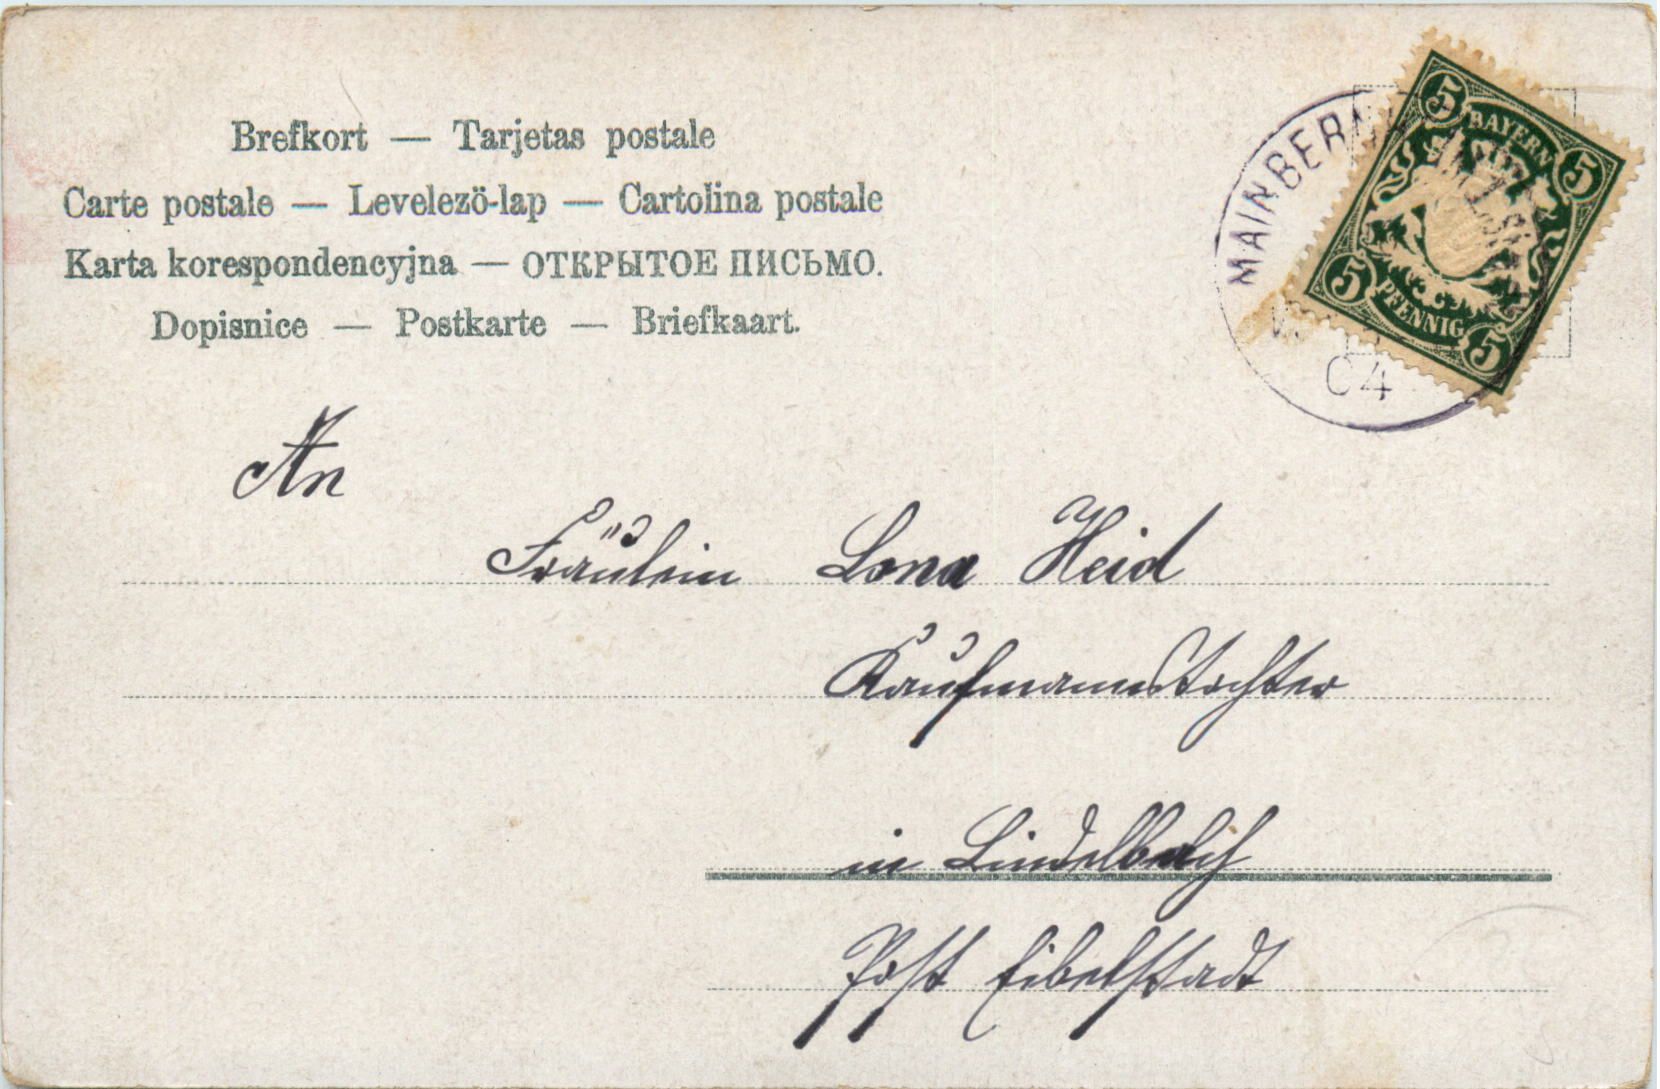 Brefkort — Tarjetas postale
Carte postale — Levelezö-lap — Cartolina postale
Karta korespondencyjna — ОТКРЫТОЕ ПИСЬМО.
Dopisnice — Postkarte — Briefkaart.
MAINBERN
04
5 BAYERN 5
5 PFENNIG 5
An
Fräulein Lona Heid
Kaufmannstochter
in Lindelbach
Post Eibelstadt